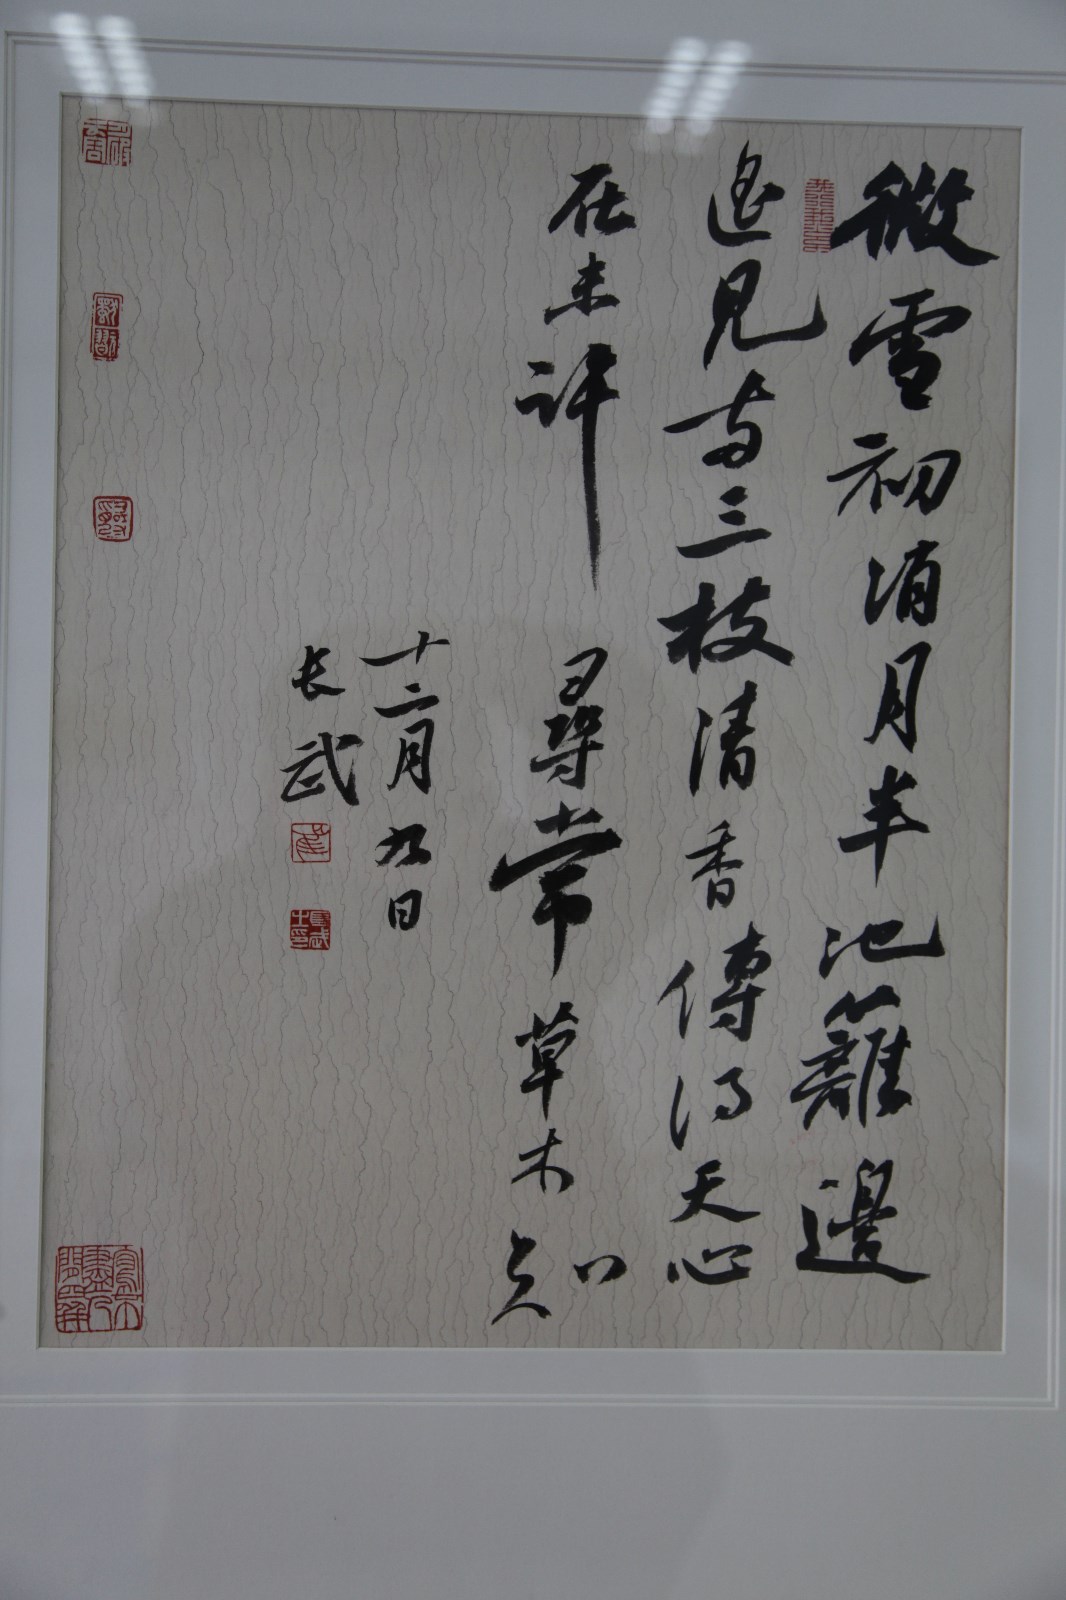 微雪初消月半池籬邊
遙見兩三枝清香傳得天心
在未許尋常草木知
十二月九日
长武